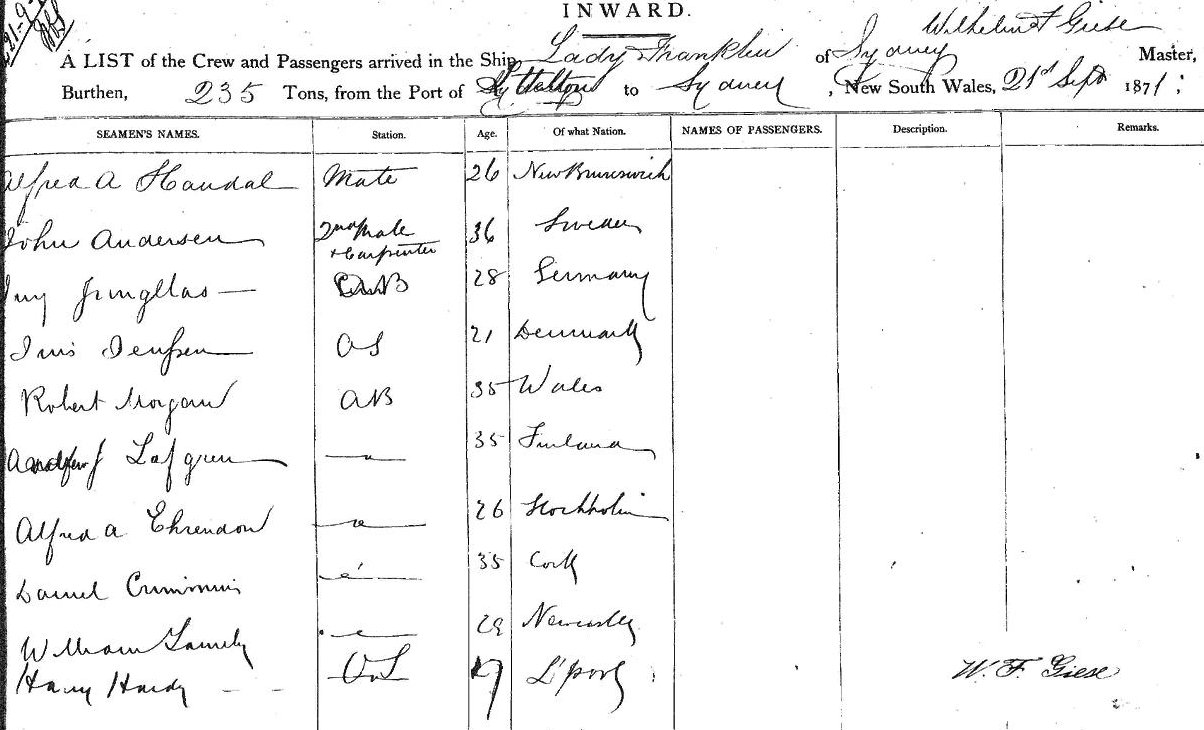 INWARD.
Wilhelm F Giese
A LIST of the Crew and Passengers arrived in the Ship Lady Franklin of Sydney Master,
Burthen, 235 Tons, from the Port of Lyttelton to Sydney, New South Wales, 21st Sept 1871;
SEAMEN'S NAMES. Station. Age. Of what Nation. NAMES OF PASSENGERS. Description. Remarks.
Alfred A Mate 26 New Brunswick
John Andersen 2nd Mate + Carpenter 36 Sweden
AB 28 Germany
OS 21 Denmark
Robert Morgan AB 35 Wales
Lafgren — " — 35 Finland
Alfred A — " — 26 Stockholm
Daniel Crimmins — " — 35 Cork
William — " — 29
Harry Hardy - - OS 19 L'pool
W. F. Giese